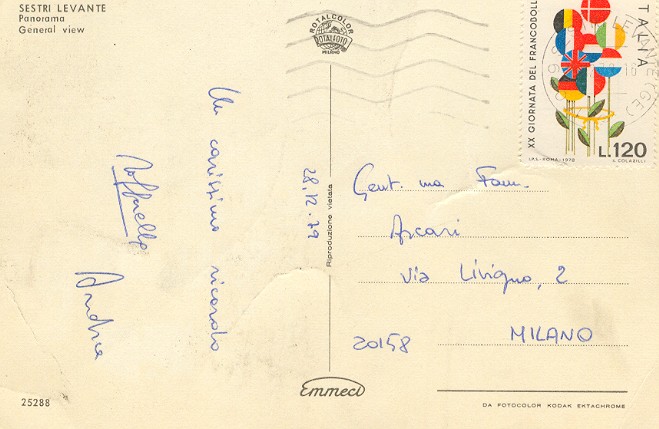 SESTRI LEVANTE
Panorama
General view
ROTALCOLOR
ROTALFOTO
MILANO
XX GIORNATA DEL FRANCOBOLLO
ITALIA
L.120
I.P.S.-ROMA-1978
S. COLABELLI
Un carissimo ricordo
Raffaella
Andrea
28.12.79
Riproduzione vietata
Gent.ma Fam.
Ascari
Via Livigno, 2
20158 MILANO
25288
Emmeci
DA FOTOCOLOR KODAK EKTACHROME